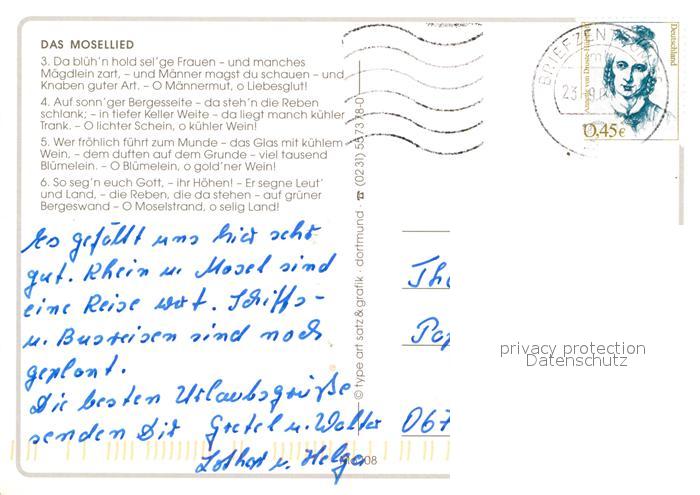 DAS MOSELLIED
3. Da blüh'n hold sel'ge Frauen – und manches
Mägdlein zart, – und Männer magst du schauen – und
Knaben guter Art. – O Männermut, o Liebesglut!
4. Auf sonn'ger Bergesseite – da steh'n die Reben
schlank; – in tiefer Keller Weite – da liegt manch kühler
Trank. – O lichter Schein, o kühler Wein!
5. Wer fröhlich führt zum Munde – das Glas mit kühlem
Wein, – dem duften auf dem Grunde – viel tausend
Blümelein. – O Blümelein, o gold'ner Wein!
6. So seg'n euch Gott, – ihr Höhen! – Er segne Leut'
und Land, – die Reben, die da stehen – auf grüner
Bergeswand – O Moselstrand, o selig Land!
Es gefällt uns hier sehr
gut. Rhein u. Mosel sind
eine Reise wert. Schiffs-
u. Busreisen sind noch
geplant.
Die besten Urlaubsgrüße
senden Dir Gretel u. Walter
Lothar u. Helga
© type art satz & grafik · dortmund · ☎ (0231) 557378-0
BRIEFZENTRUM
23
Deutschland
0,45€
067
privacy protection
Datenschutz